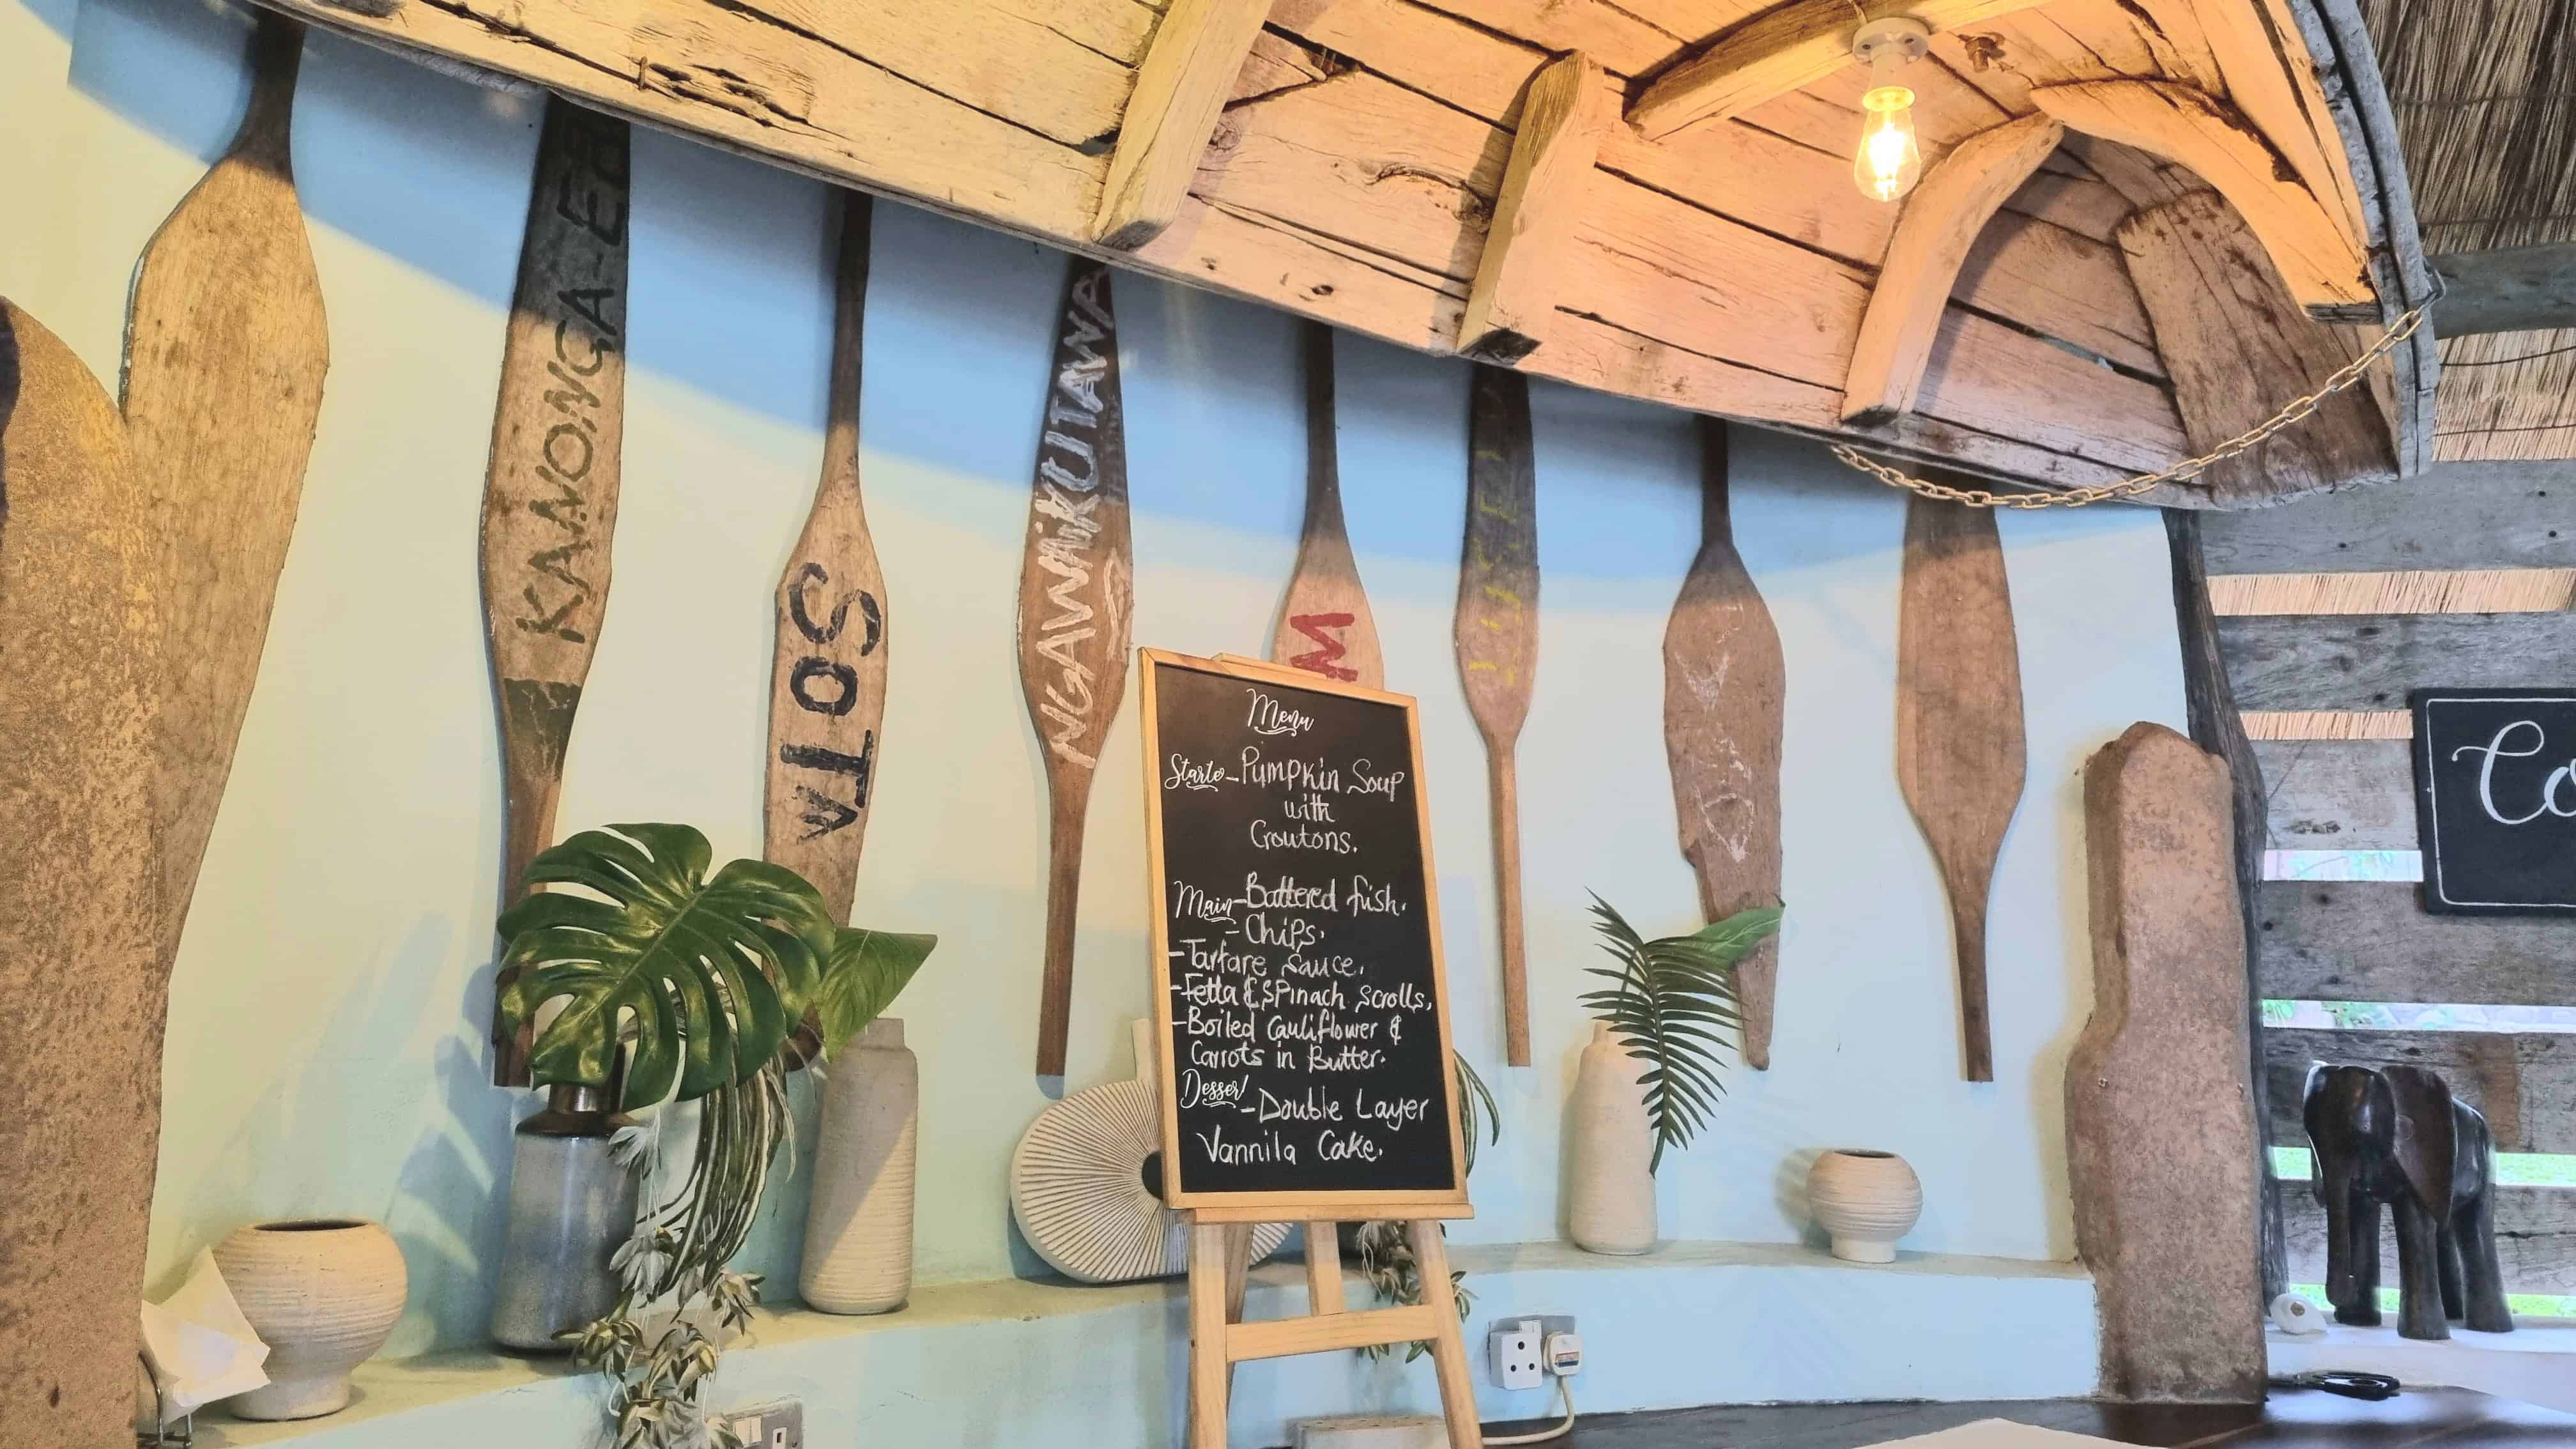 KAWONGA-E
SOTA
NGAWAIKUTAWA
M
Menu
Starte-Pumpkin Soup
with
Croutons.
Main-Battered fish.
- Chips.
-Tartare Sauce.
-Fetta & Spinach Scrolls,
-Boiled Cauliflower &
Carrots in Butter.
Dessert
-Double Layer
Vannila Cake.
Co